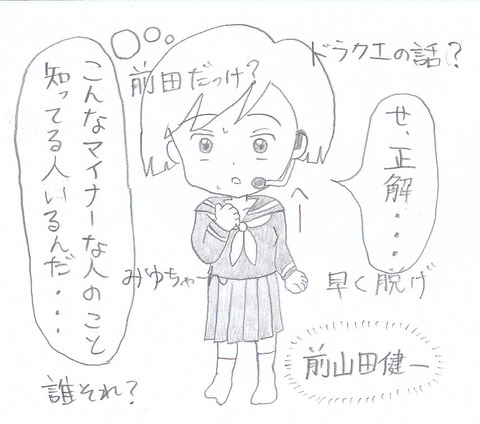 ドラクエの話?
前田だっけ?
せ、正解・・・・・
こんなマイナーな人のこと
知ってる人いるんだ・・・・
へー
みゆちゃーん
早く脱げ
前山田健一
誰それ?